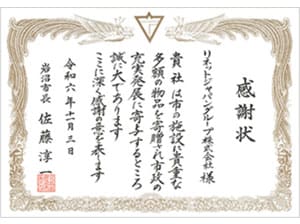 感謝状
リネットジャパングループ株式会社 様
貴社は市の施設に貴重な
多額の物品を寄贈され市政の
充実発展に寄与するところ
誠に大であります
ここに深く感謝の意を表します
令和六年十一月三日
岩沼市長 佐藤淳一